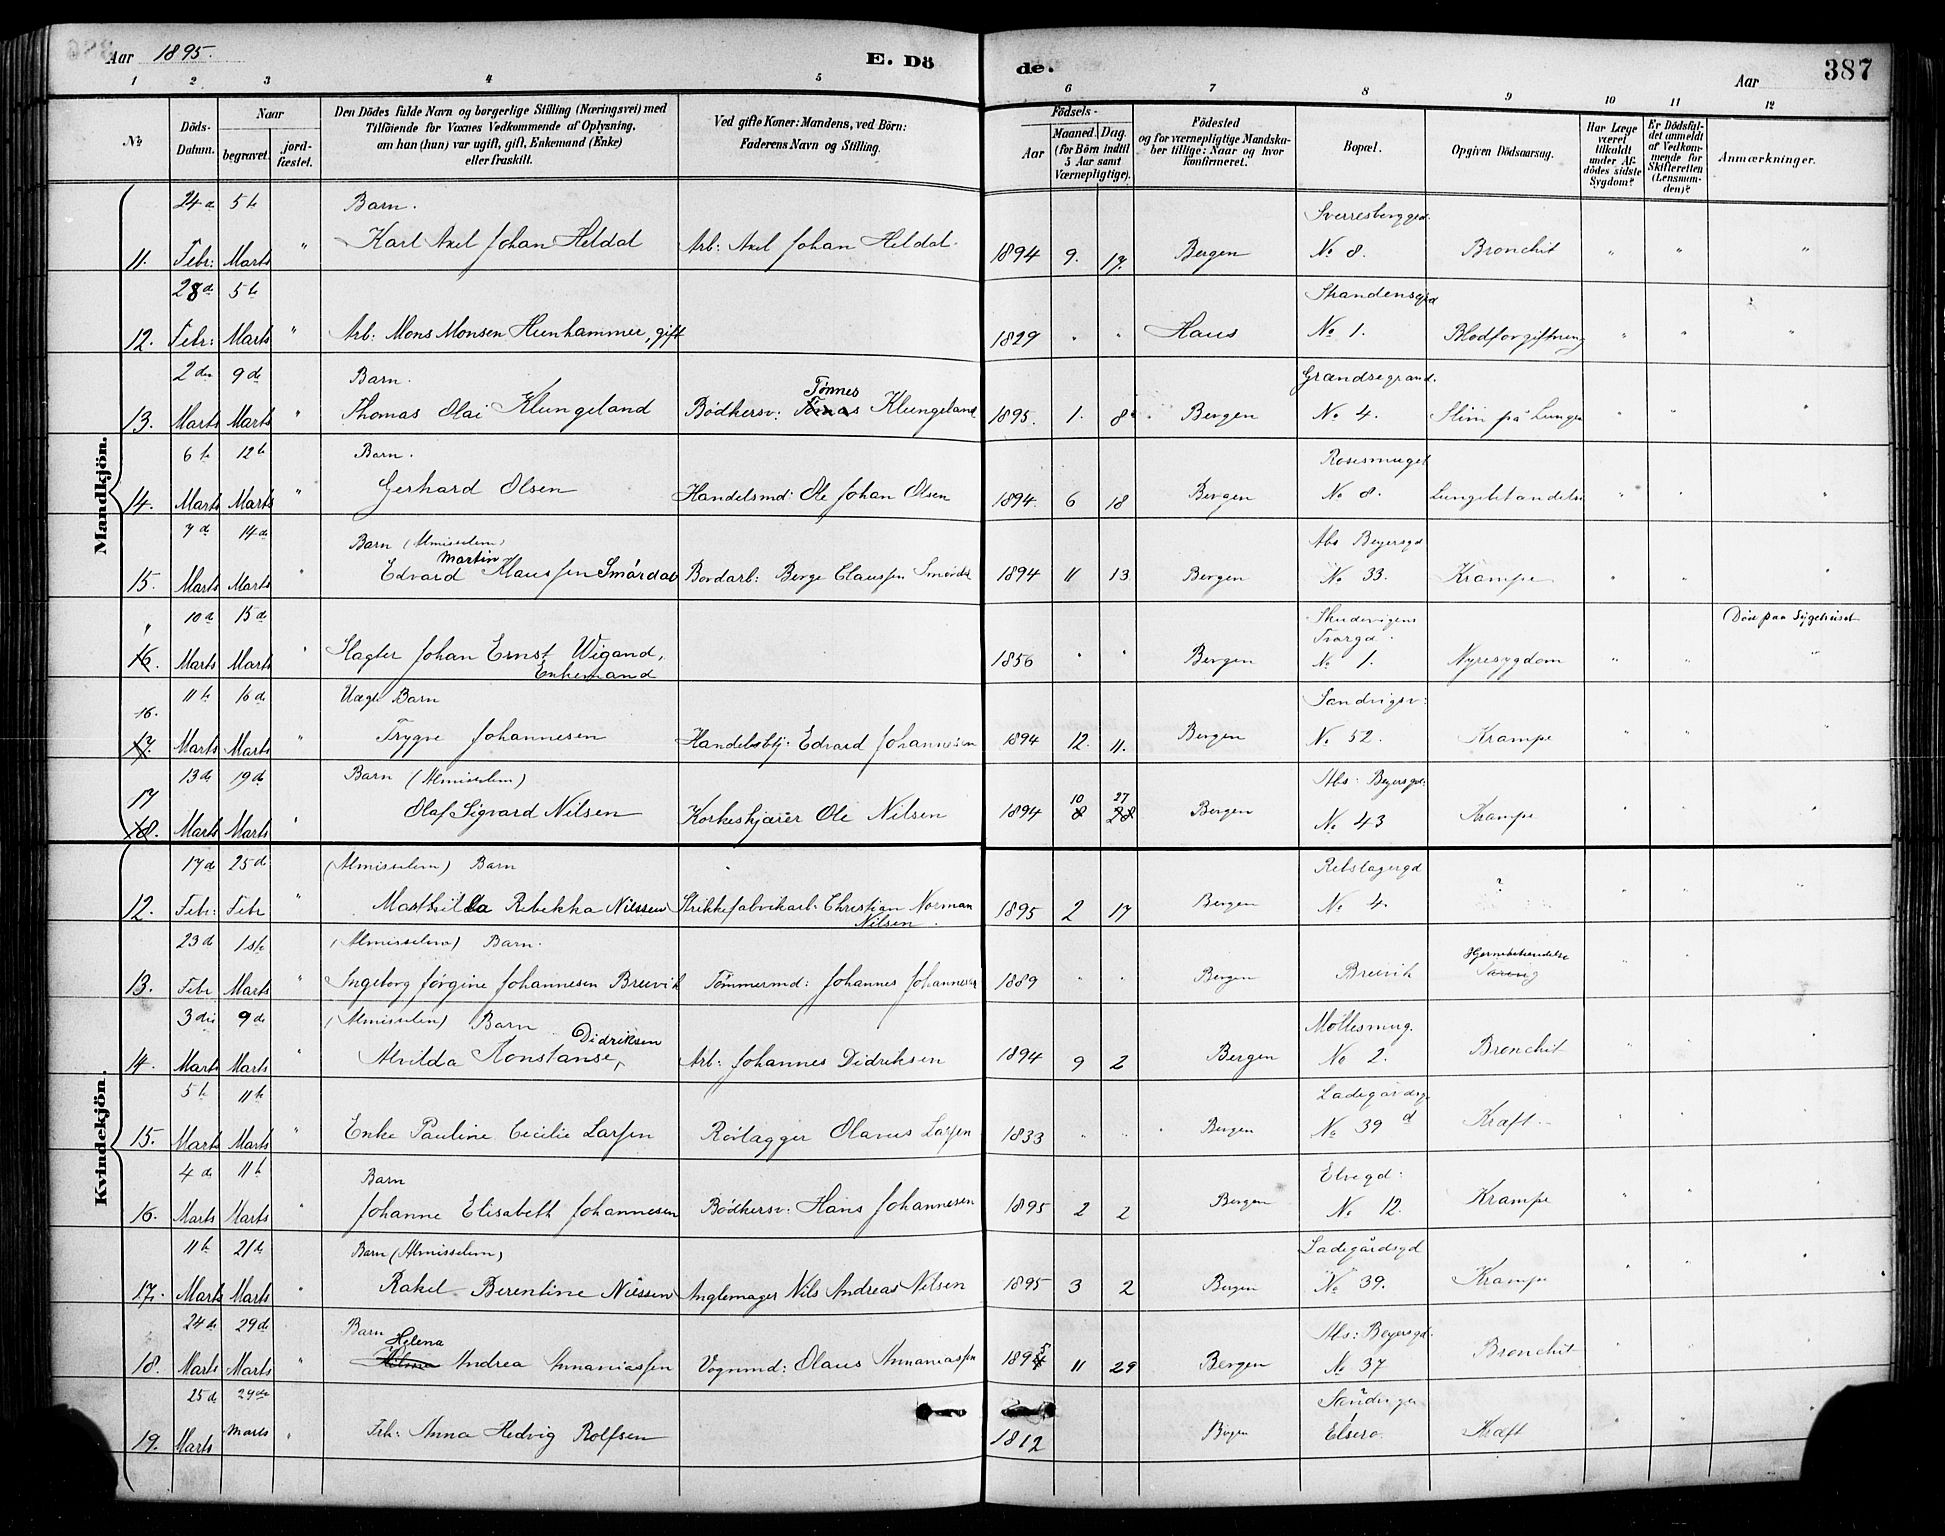 Aar 1895.
E. Döde.
Aar
387
1 2 3 4 5 6 7 8 9 10 11 12
No
Döds-Datum.
Naar
begravet.
jordfæstet.
Den Dödes fulde Navn og borgerlige Stilling (Næringsvei) med Tilföiende for Voxnes Vedkommende af Oplysning, om han (hun) var ugift, gift, Enkemand (Enke) eller fraskilt.
Ved gifte Koner: Mandens, ved Börn: Faderens Navn og Stilling.
Födsels-
Aar
Maaned. Dag.
(for Börn indtil 5 Aar samt Værnepligtige).
Födested og for værnepligtige Mandskaber tillige: Naar og hvor konfirmeret.
Bopæl.
Opgiven Dödsaarsag.
Har Læge været tilkaldt under Afdödes sidste Sygdom?
Er Dödsfaldet anmeldt af Vedkommende for Skifteretten (Lensmanden)?
Anmærkninger.
Mandkjön.
11. 24de Febr: 5te Marts " Barn. Karl Axel Johan Heldal Arb: Axel Johan Heldal. 1894 9. 17. Bergen Sverresborggd. No 8. Bronchit " " "
12. 28de Febr: 5te Marts " Arb: Mons Monsen Hunhammer, gift 1829 " " Haus No 1. Blodforgiftning " " "
13. 2den Marts 9de Marts " Barn. Thomas Olai Klungeland Bödkersv: Tönnes Klungeland 1895. 1. 8 Bergen Grændsegrand. No 4. Slim på Lunger " " "
14. 6te Marts 12te Marts " Barn. Gerhard Olsen Handelsmd: Ole Johan Olsen 1894. 6 18 Bergen Rosesmuget No 8. " " "
15. 7de Marts 14de Marts " Barn (Almisselem) Edvard Martin Klaussen Smördal Bordarb: Berge Claussen Smördal 1894 11 13 Bergen Abs Beyersgd No 33. Krampe " " "
" 16. 10de Marts 15de Marts Slagter Johan Ernst Wigand, Enkemand 1856 " " Bergen Skudevigens Tvargd. No 1. Nyresygdom " " Död paa Sygehuset "
16. 17. 11te Marts 16de Marts " Uægte Barn Trygve Johannesen Handelsbtj: Edvard Johannesen 1894 12. 11. Bergen Sandvigsv: No 52. Krampe " " "
17 18. 13de Marts 19de Marts " Barn (Almisselem) Olaf Sigvard Nilsen Korkeskjærer Ole Nilsen 1894 10 8 27 28 Bergen Abs: Beyersgd. No 43 Krampe " " "
Kvindekjön.
12. 17de Febr: 25de Febr " (Almisselem) Barn Marthilda Rebekka Nilssen Strikkefabrikarb. Christian Norman Nilsen. 1895 2 17 Bergen Rebslagergd No 4. ? " " "
13. 23de Febr 1ste Marts " (Almisselem) Barn. Ingeborg Jörgine Johannesen Breivik Tömmermd: Johannes Johannesen 1889 " " Bergen Breivik Hjernebetændelse " "
14. 3die Marts 9de Marts " (Almisselem) Barn Alvilda Konstanse, Didriksen Arb: Johannes Didriksen 1894 9 2 Bergen Möllesmug. No 2. Bronchit " "
15. 5te Marts 11te Marts " Enke Pauline Cecilie Larsen Olavus Larsen 1833 " " Bergen Ladegårdsg. No 39 d Kræft " "
16. 4de Marts 11te Marts " Barn Johanne Elisabeth Johannesen Bödkersv: Hans Johannesen 1895 2 2 Bergen Elvegd: No 12. Krampe " " "
17. 11te Marts 21de Marts " Barn (Almisselem) Rakel Berentine Nilssen Anglemager Nils Andreas Nilsen 1895 3 2 Bergen Ladegårdsgd No 39. Krampe " " "
18. 24de Marts 29de Marts " Barn Helena Andrea Annaniassen Vognmd: Olaus Annaniassen 1895 11 29 Bergen Abs: Beyersgd. No 37 Bronchit " "
19. 25de Marts 29de Marts " Frk: Anna Hedvig Rolfsen 1812 Bergen Elsero. Kræft " " "